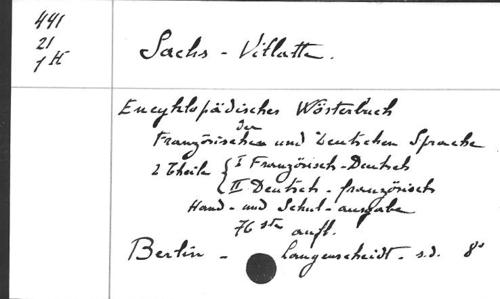 441
21
1 H
Sachs - Villatte.
Encyklopädisches Wörterbuch
der
Französischen und Deutschen Sprache
2 Theile { I Französisch - Deutsch
II Deutsch - französisch
Hand - und Schul - ausgabe
76 ste aufl.
Berlin - Langenscheidt - s.d. 8°